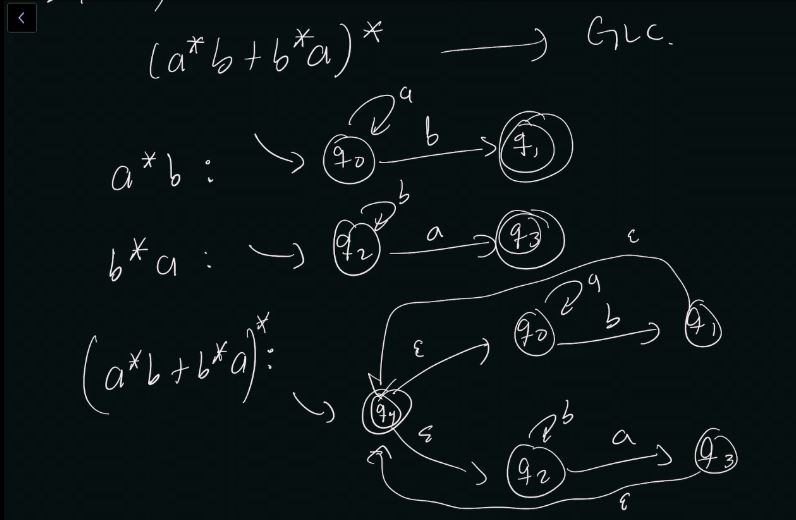 (a*b+b*a)* → GLC.
a*b : q0 a b q1
b*a : q2 b a q3
(a*b+b*a)*: q4 ε q0 a b q1 ε
ε q2 b a q3 ε